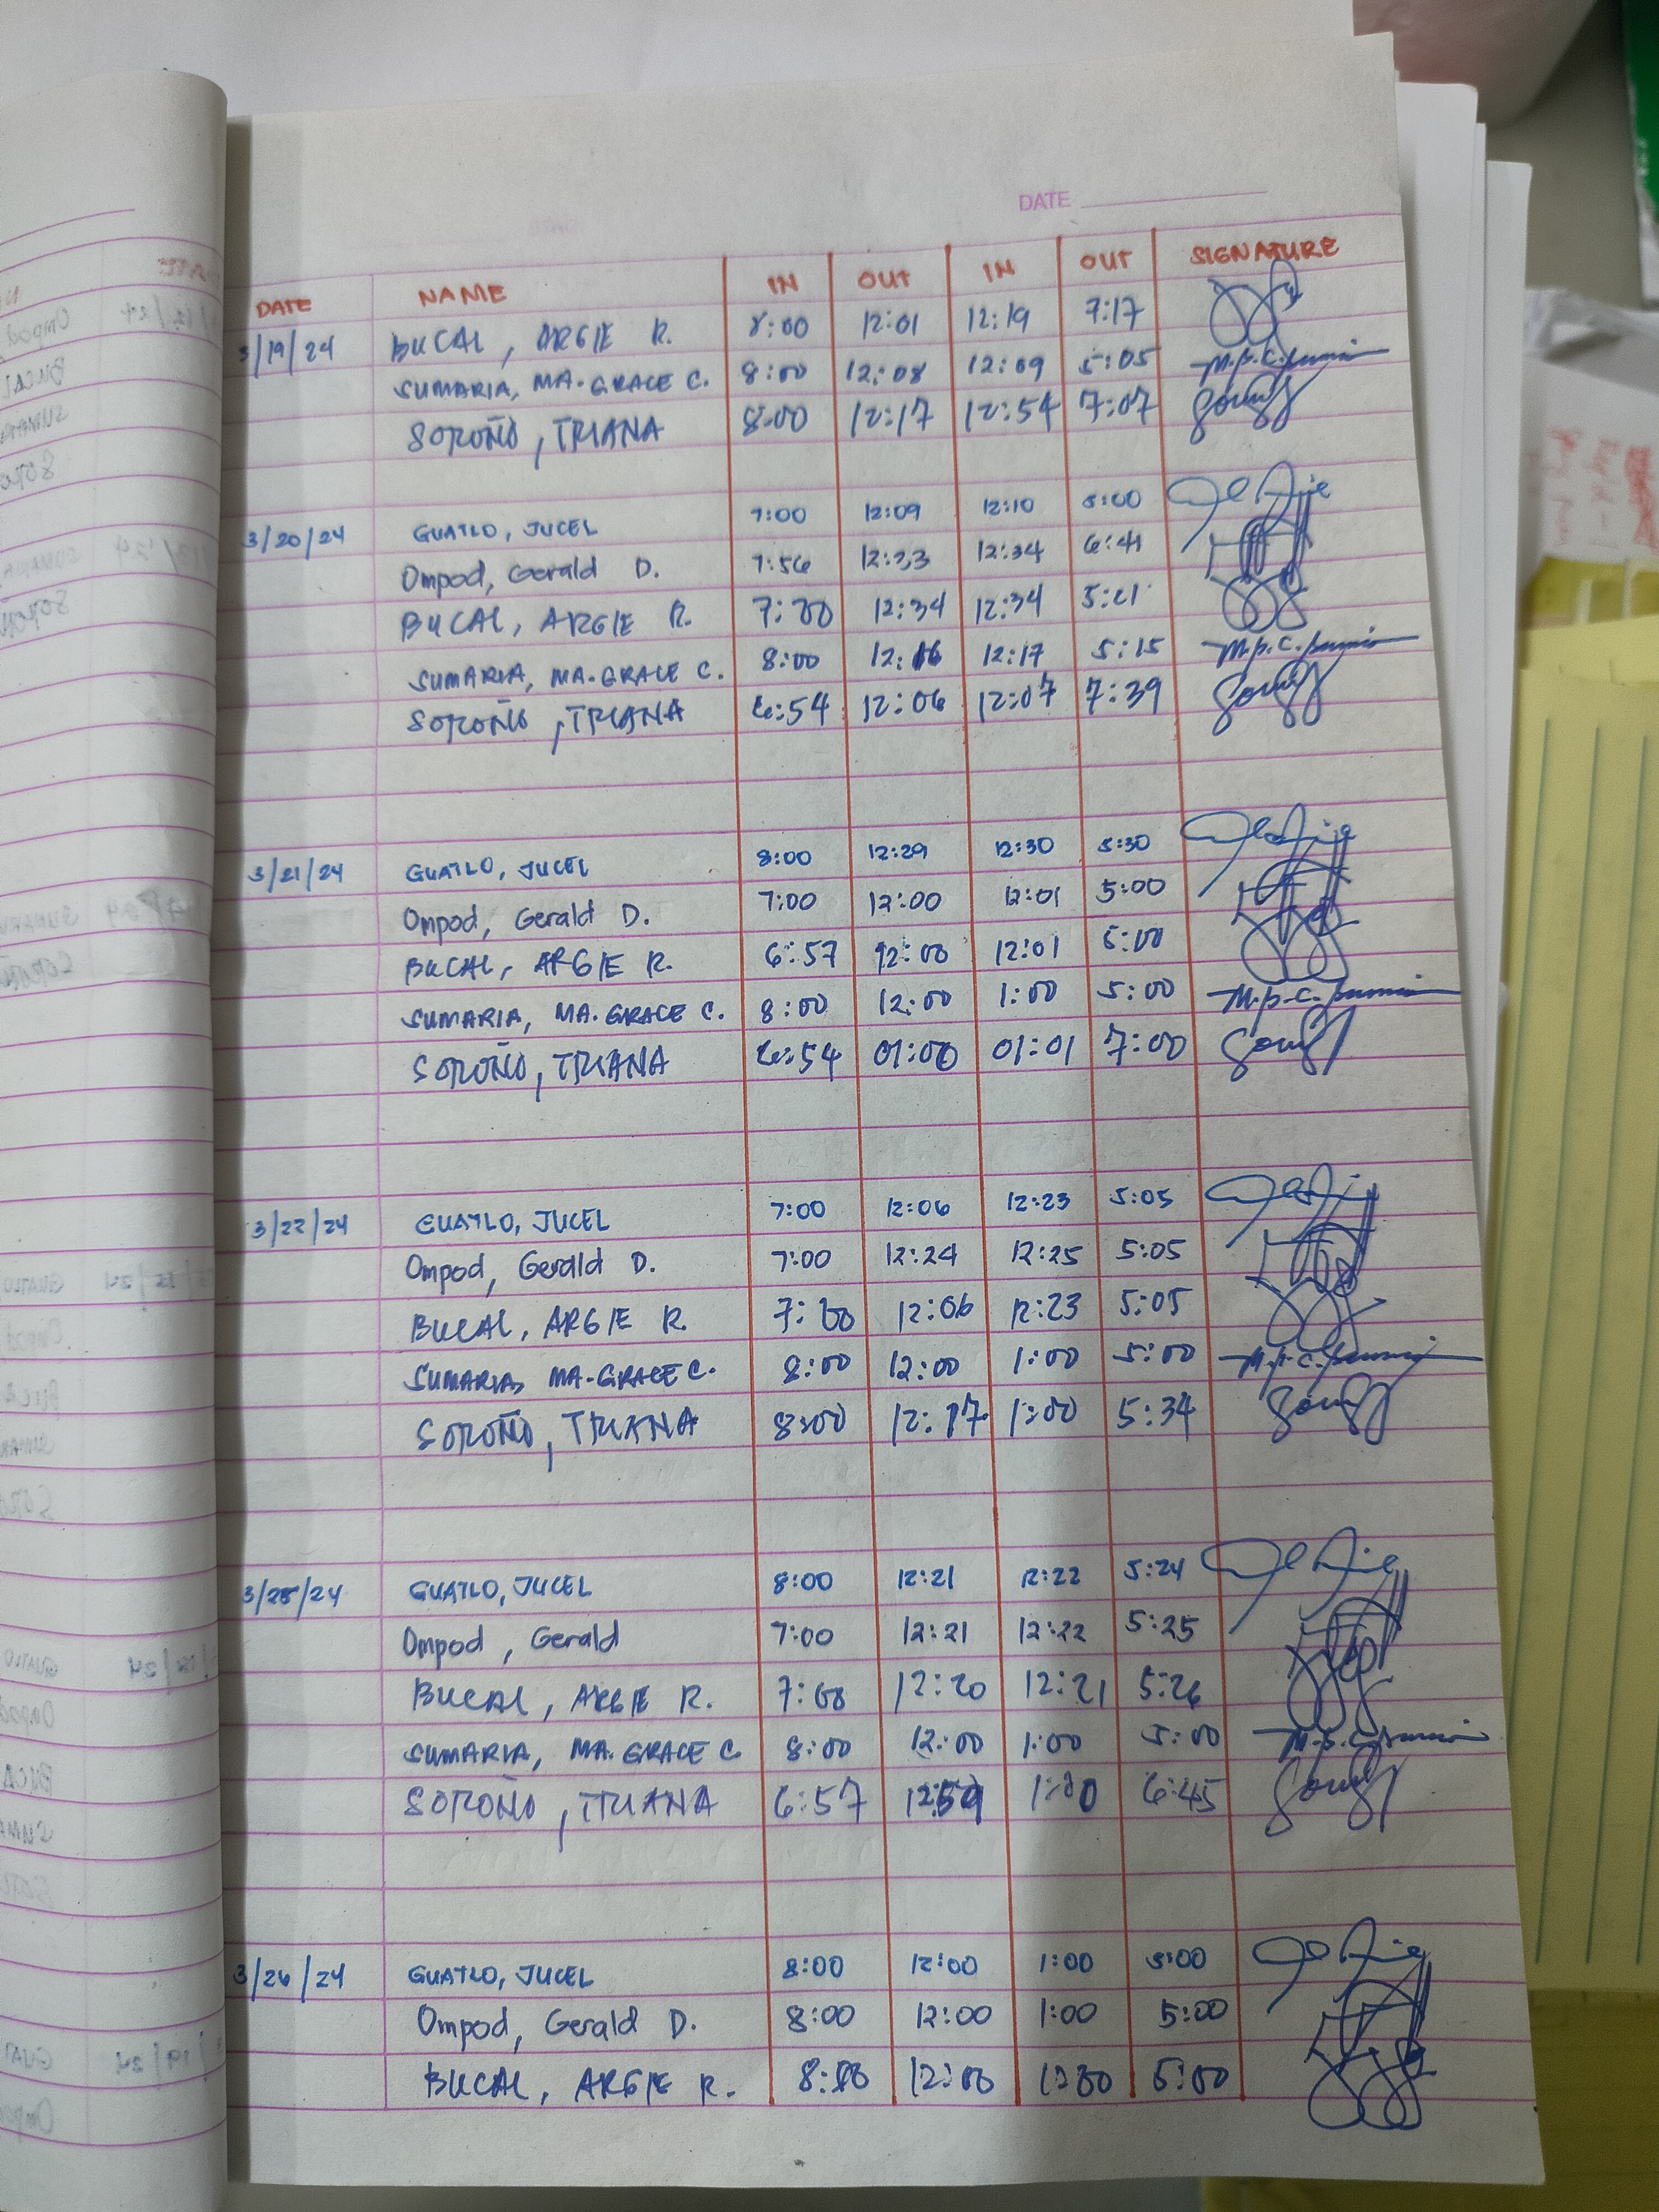 DATE
DATE NAME IN OUT IN OUT SIGNATURE
3/19/24 BUCAL, ARGIE R. 8:00 12:01 12:19 7:17
SUMARIA, MA. GRACE C. 8:00 12:08 12:09 5:05
SOROÑO, TRIANA 8:00 12:17 12:54 7:07
3/20/24 GUATLO, JUCEL 7:00 12:09 12:10 5:00
Ompod, Gerald D. 7:56 12:33 12:34 6:41
BUCAL, ARGIE R. 7:00 12:34 12:34 5:21
SUMARIA, MA. GRACE C. 8:00 12:16 12:17 5:15
SOROÑO, TRIANA 6:54 12:06 12:07 7:39
3/21/24 GUATLO, JUCEL 8:00 12:29 12:30 5:30
Ompod, Gerald D. 7:00 12:00 12:01 5:00
BUCAL, ARGIE R. 6:57 12:00 12:01 5:00
SUMARIA, MA. GRACE C. 8:00 12:00 1:00 5:00
SOROÑO, TRIANA 6:54 01:00 01:01 7:00
3/22/24 GUATLO, JUCEL 7:00 12:06 12:23 5:05
Ompod, Gerald D. 7:00 12:24 12:25 5:05
BUCAL, ARGIE R. 7:00 12:06 12:23 5:05
SUMARIA, MA. GRACE C. 8:00 12:00 1:00 5:00
SOROÑO, TRIANA 8:00 12:17 1:00 5:34
3/25/24 GUATLO, JUCEL 8:00 12:21 12:22 5:24
Ompod, Gerald 7:00 12:21 12:22 5:25
BUCAL, ARGIE R. 7:00 12:20 12:21 5:26
SUMARIA, MA. GRACE C. 8:00 12:00 1:00 5:00
SOROÑO, TRIANA 6:57 12:59 1:00 6:45
3/26/24 GUATLO, JUCEL 8:00 12:00 1:00 5:00
Ompod, Gerald D. 8:00 12:00 1:00 5:00
BUCAL, ARGIE R. 8:00 12:00 1:00 5:00